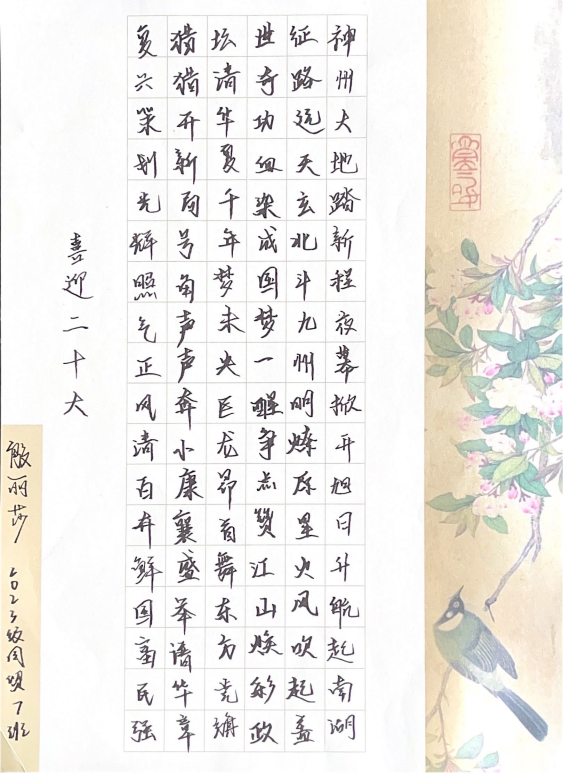 神州大地踏新程夜幕掀开旭日升航起南湖
征路远天玄北斗九州明燎原星火风吹起盖
世奇功血染成国梦一醒争点赞江山焕彩政
坛清华夏千年梦未央巨龙昂首舞东方党旗
猎猎开新局号角声声奔小康襄盛举谱华章
复兴策划光辉照气正风清百卉鲜国富民强
喜迎二十大
殷丽莎 级同盟7班